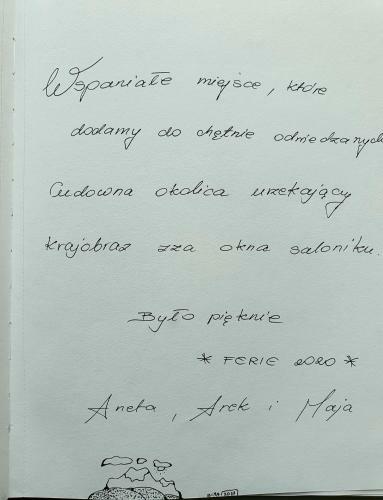 Wspaniałe miejsce, które
dodamy do chętnie odwiedzanych
Cudowna okolica urzekający
krajobraz zza okna saloniku.
Było pięknie
* FERIE 2020 *
Aneta, Arek i Maja